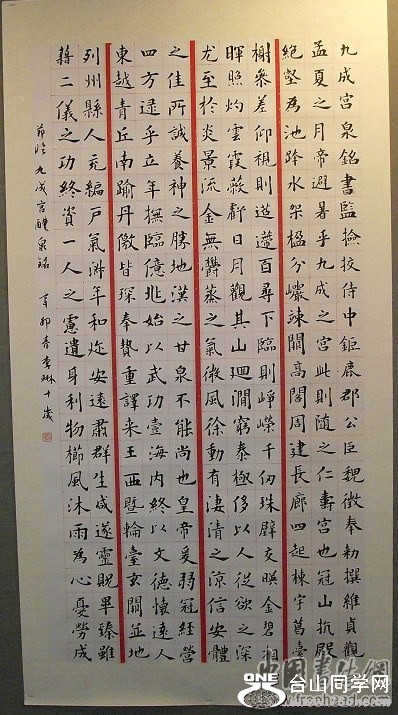 九成宫泉銘書監撿挍侍中鉅鹿郡公臣魏徵奉勅撰維貞觀
孟夏之月帝避暑乎九成之宮此則随之仁壽宮也冠山抗殿
絶壑為池跨水架楹分巖竦闕高閣周建長廊四起棟宇葛臺
榭參差仰視則迢遰百尋下臨則崢嶸千仞珠壁交暎金碧相
暉照灼雲霞蔽虧日月觀其山迴澗窮泰極侈以人從欲之深
尤至於炎景流金無鬱蒸之氣微風徐動有淒清之涼信安體
之佳所誠養神之勝地漢之甘泉不能尚也皇帝爰弱冠經營
四方逯乎立年撫臨億兆始以武功壹海内終以文德懷遠人
東越青丘南踰丹儌皆琛奉贄重譯来王西曁輪臺玄闕並地
列州縣人充編戶氣淋年和迩安遠肅群生咸遂靈貺畢臻雖
藉二儀之功終資一人之慮遺身利物櫛風沐雨為心憂勞成
節臨九成宫醴泉銘 辛卯春李琳十歲
ONE
台山同学网